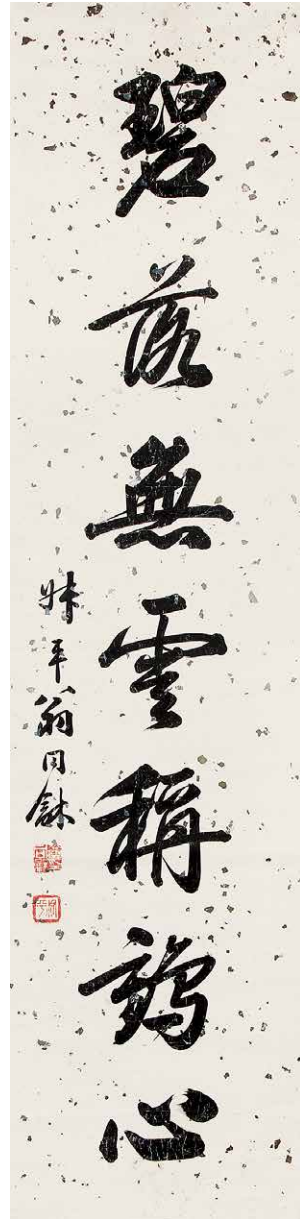 碧落無雲稱鶴心
叔平翁同龢